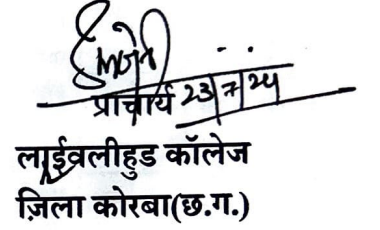 प्राचार्य 23/7/24
लाईवलीहुड कॉलेज
ज़िला कोरबा(छ.ग.)